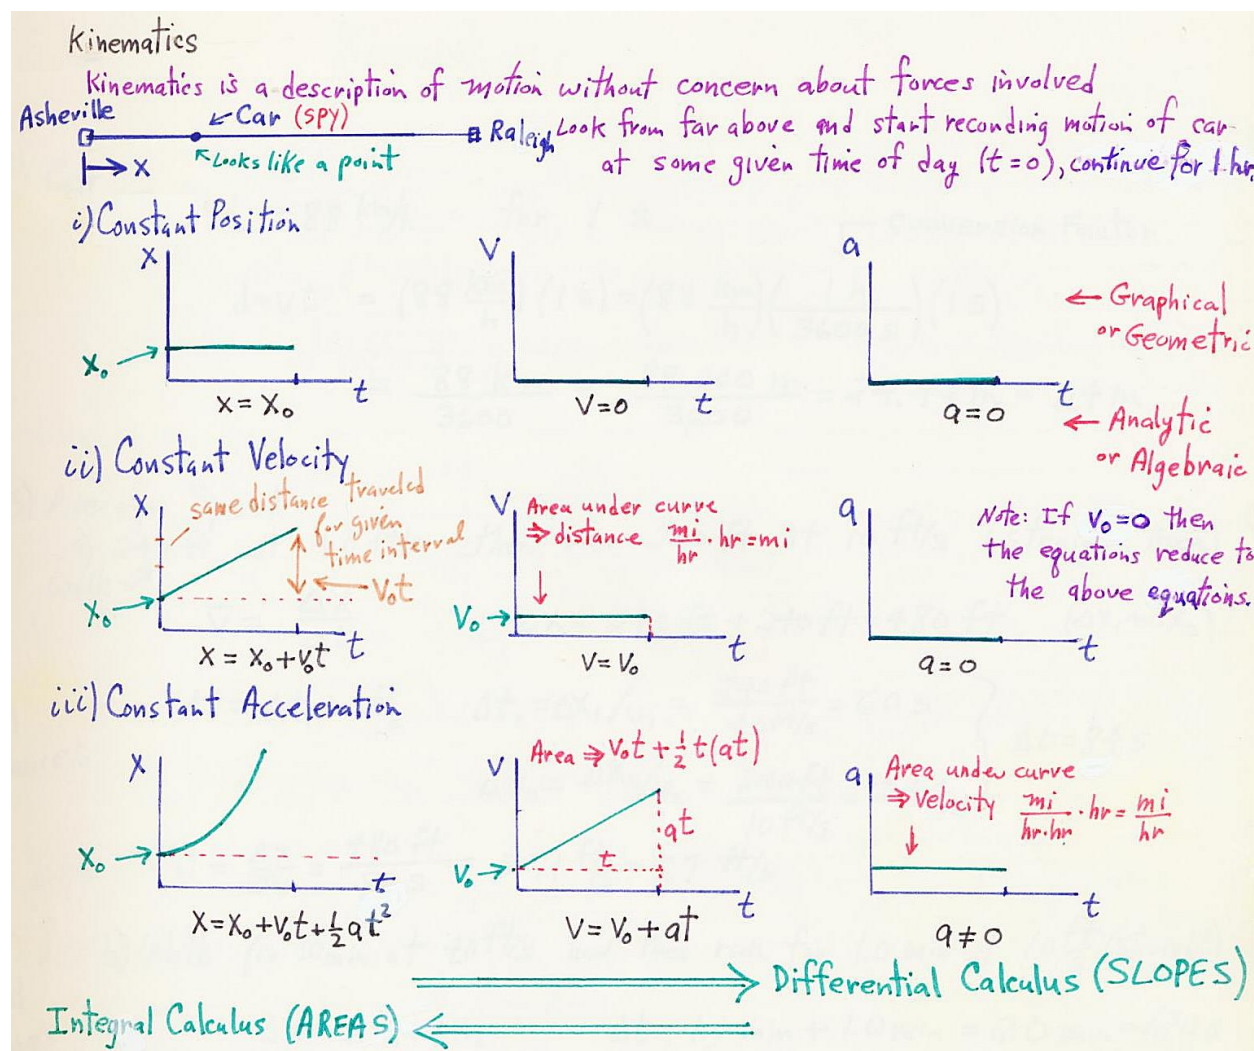 Kinematics
Kinematics is a description of motion without concern about forces involved
Asheville
Car (SPY)
Raleigh
Look from far above and start recording motion of car
X
Looks like a point
at some given time of day (t=0), continue for 1 hr.
i) Constant Position
X
V
a
← Graphical
or Geometric
X₀
t
t
t
X = X₀
V=0
a=0
← Analytic
or Algebraic
ii) Constant Velocity
X
same distance traveled
for given
time interval
V₀t
X₀
t
X = X₀+V₀t
V
Area under curve
⇒ distance mi/hr · hr = mi
V₀
t
V= V₀
a
t
a=0
Note: If V₀=0 then
the equations reduce to
the above equations.
iii) Constant Acceleration
X
X₀
t
X=X₀+V₀t+½at²
V
Area ⇒ V₀t + ½t(at)
at
t
V₀
t
V= V₀+at
a
Area under curve
⇒ Velocity mi/hr·hr · hr = mi/hr
t
a≠0
Differential Calculus (SLOPES)
Integral Calculus (AREAS)